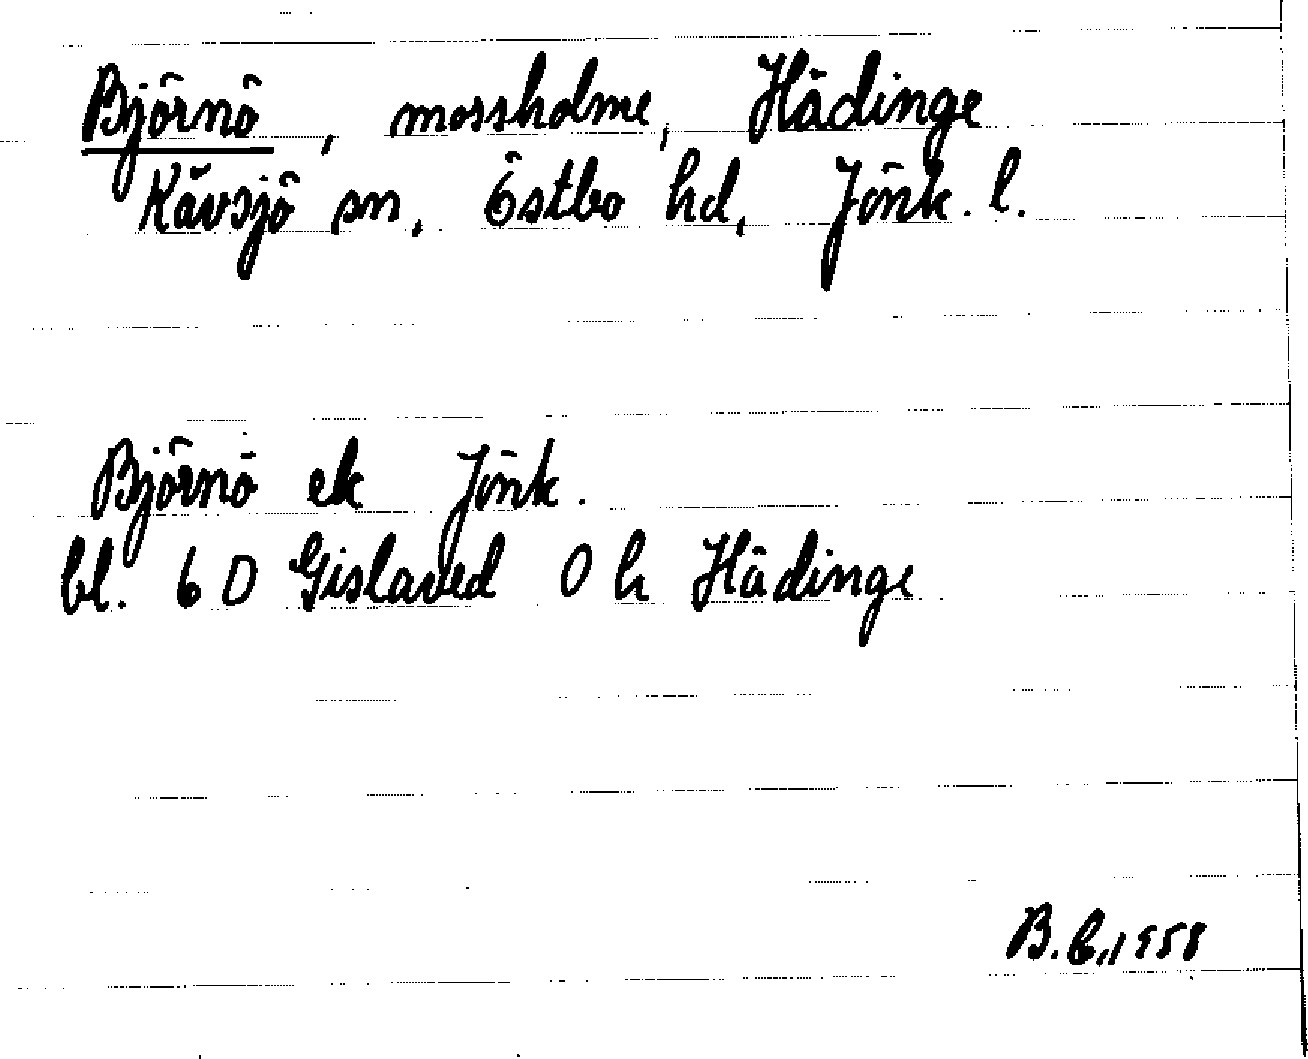 Björnö, mossholme, Hädinge
Kävsjö sn, Östbo hd, Jönk. l.
Björnö ek Jönk.
bl. 6 D Gislaved 0 h Hädinge
1958